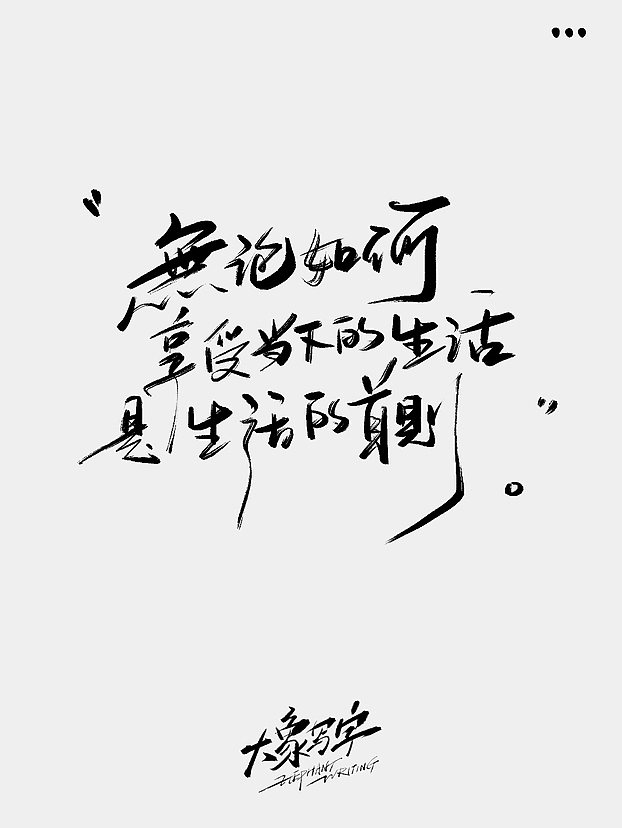 “無论如何
享受当下的生活
是生活的首则”。
大象写字
ELEPHANT WRITING